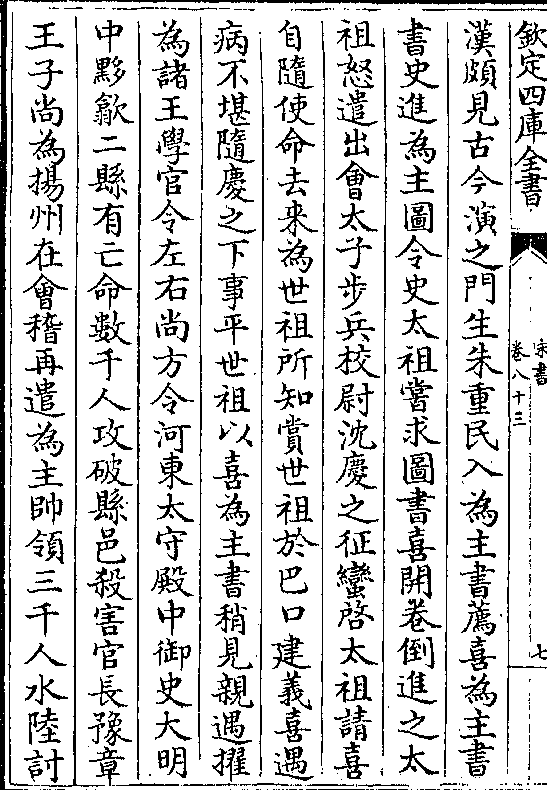 欽定四庫全書
宋書
卷八十三
七
漢頗見古今演之門生朱重民入為主書薦喜為主書
書史進為主圖令史太祖嘗求圖書喜開卷倒進之太
祖怒遣出會太子步兵校尉沈慶之征蠻啓太祖請喜
自隨使命去来為世祖所知賞世祖於巴口建義喜遇
病不堪隨慶之下事平世祖以喜為主書稍見親遇擢
為諸王學官令左右尚方令河東太守殿中御史大明
中黟歙二縣有亡命數千人攻破縣邑殺害官長豫章
王子尚為揚州在會稽再遣為主帥領三千人水陸討